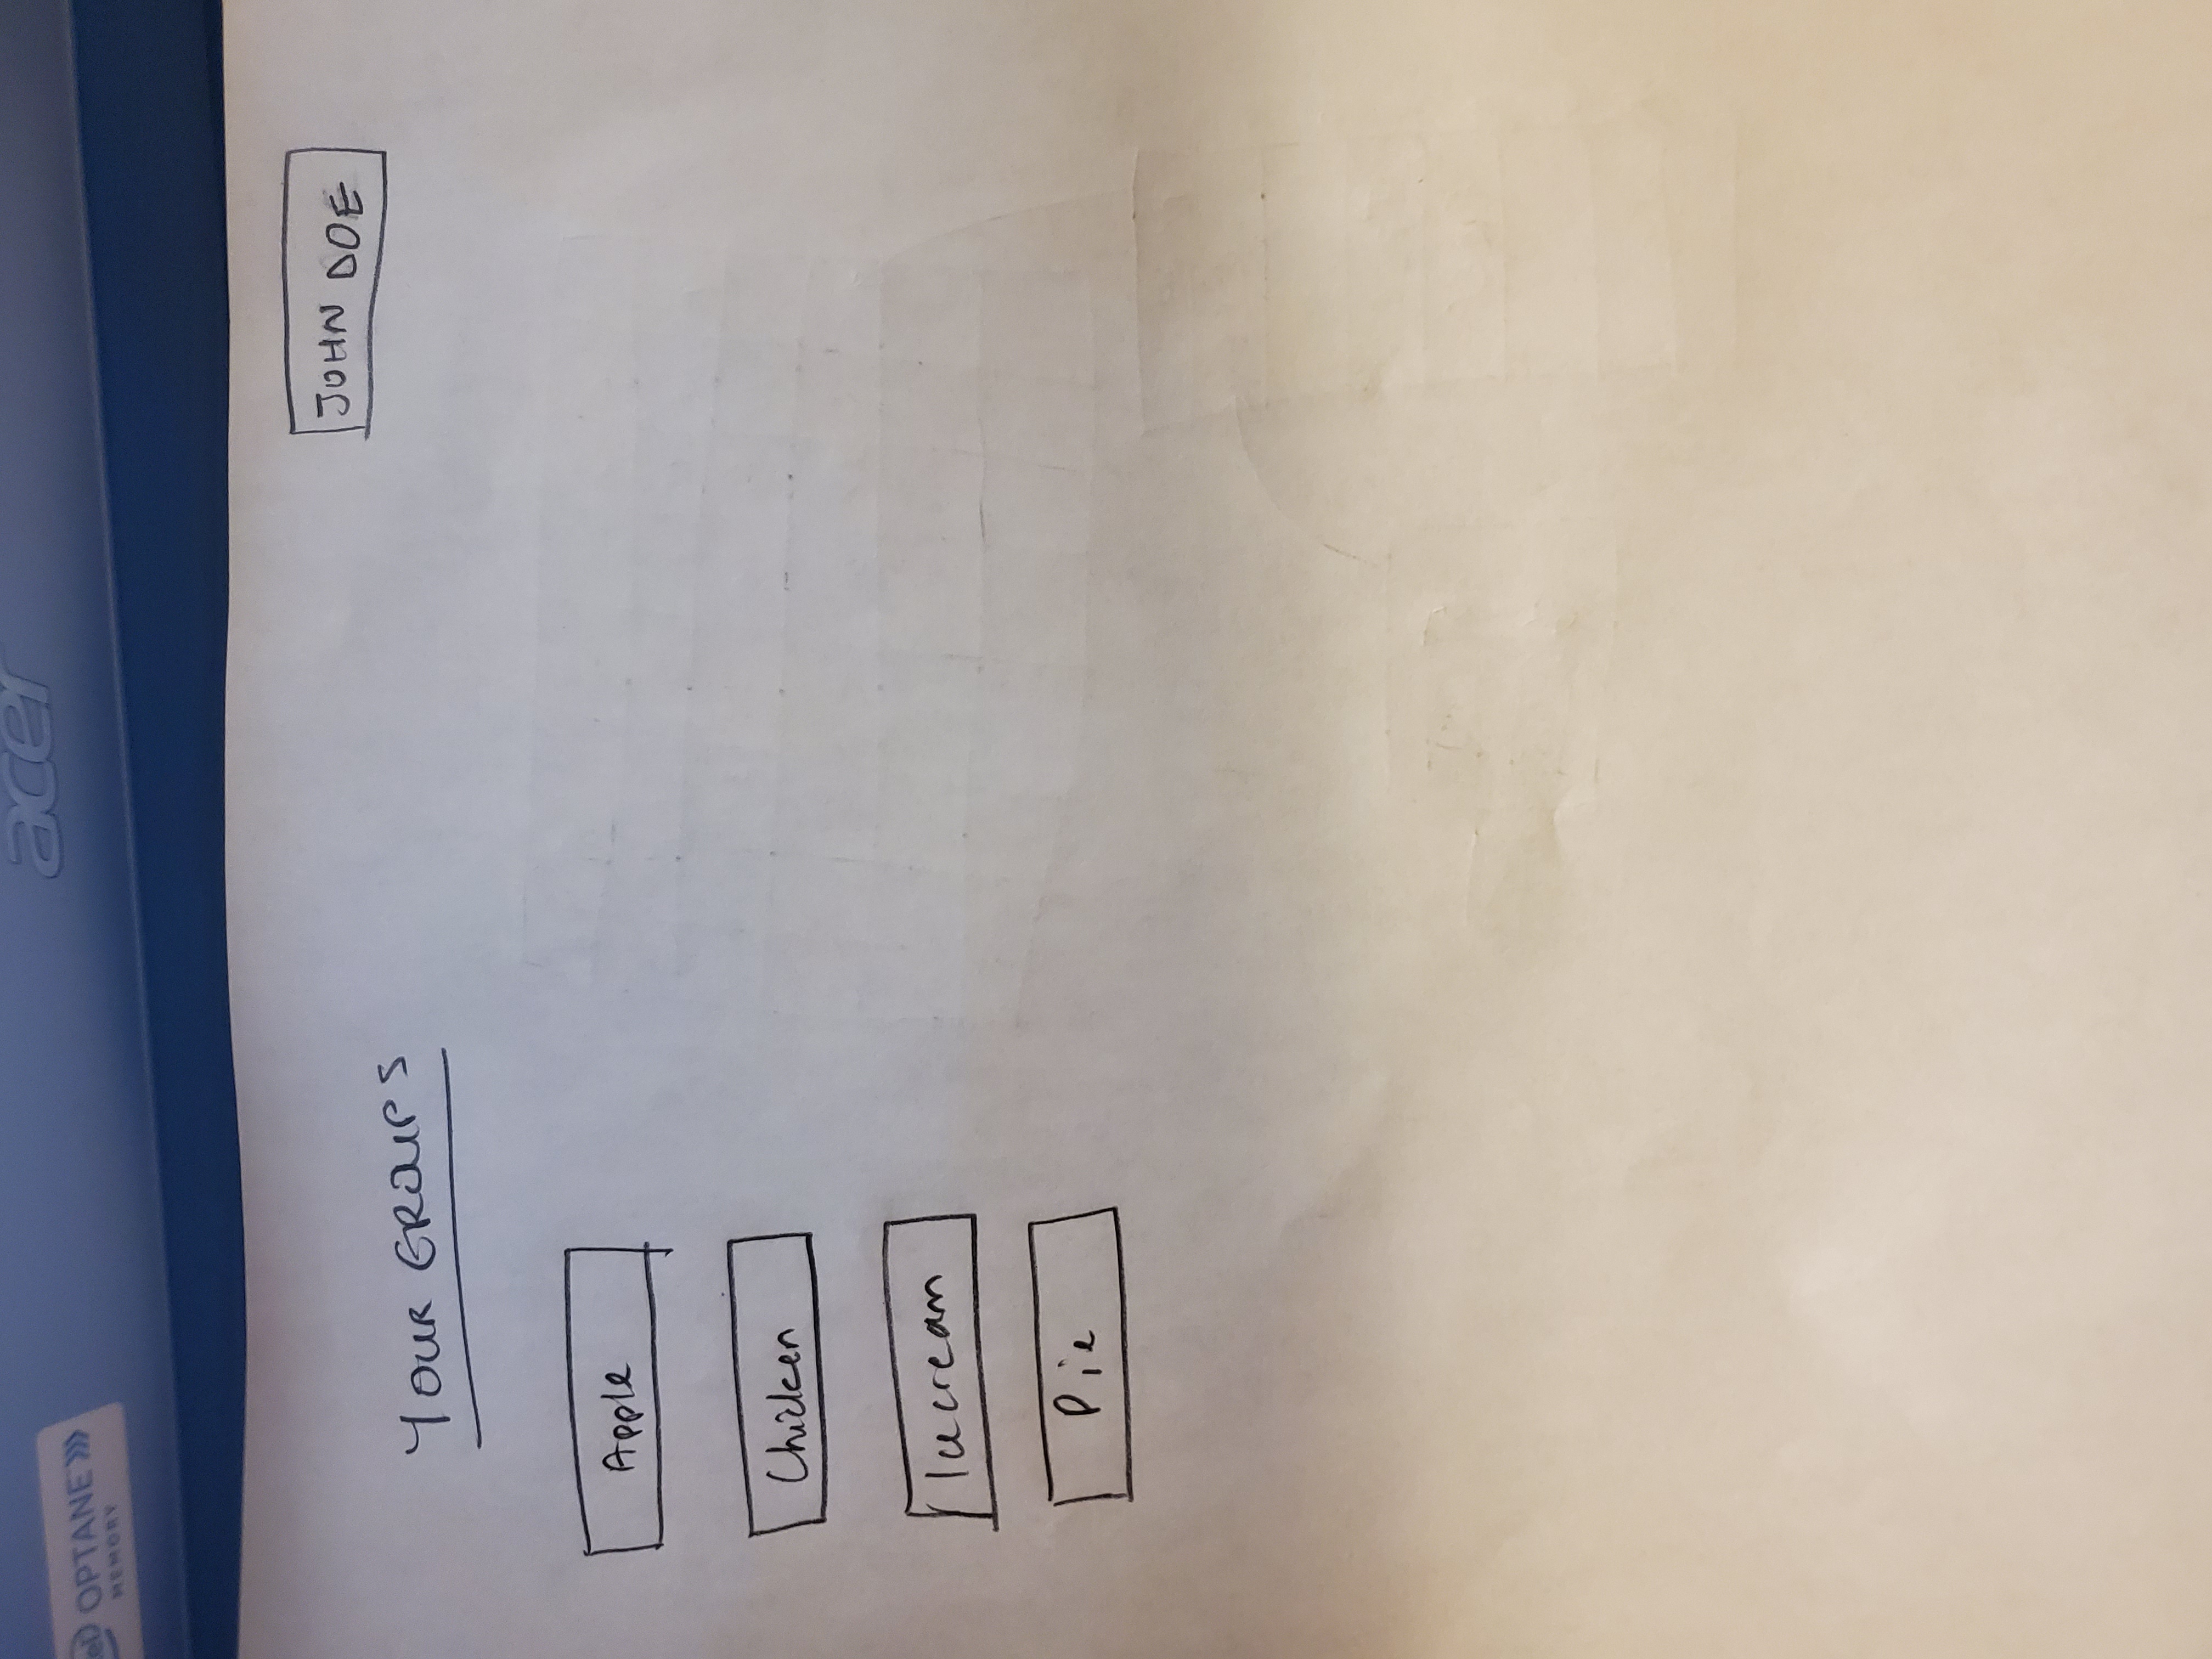 acer
OPTANE
MEMORY
JOHN DOE
YOUR GROUPS
Apple
Chicken
Icecream
Pie